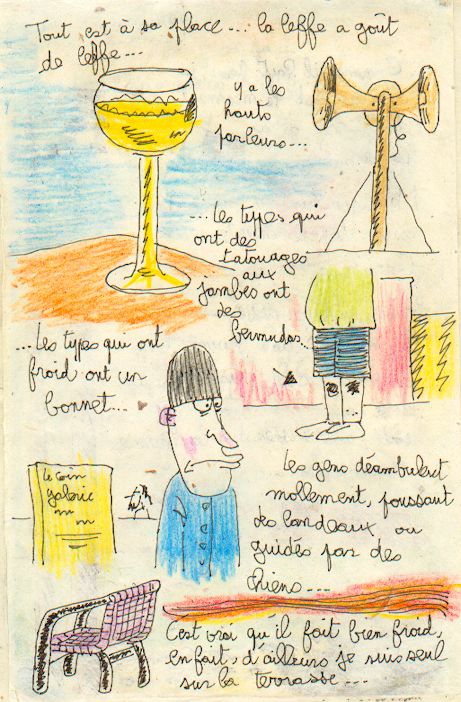 Tout est à sa place... la leffe a goût
de leffe...
y a les
hauts
parleurs...
...les types qui
ont des
tatouages
aux
jambes ont
des
bermudas...
...Les types qui ont
froid ont un
bonnet...
le coin
galerie
Les gens déambulent
mollement, poussant
des landaux ou
guidés par des
chiens...
C'est vrai qu'il fait bien froid,
en fait, d'ailleurs je suis seul
sur la terrasse...